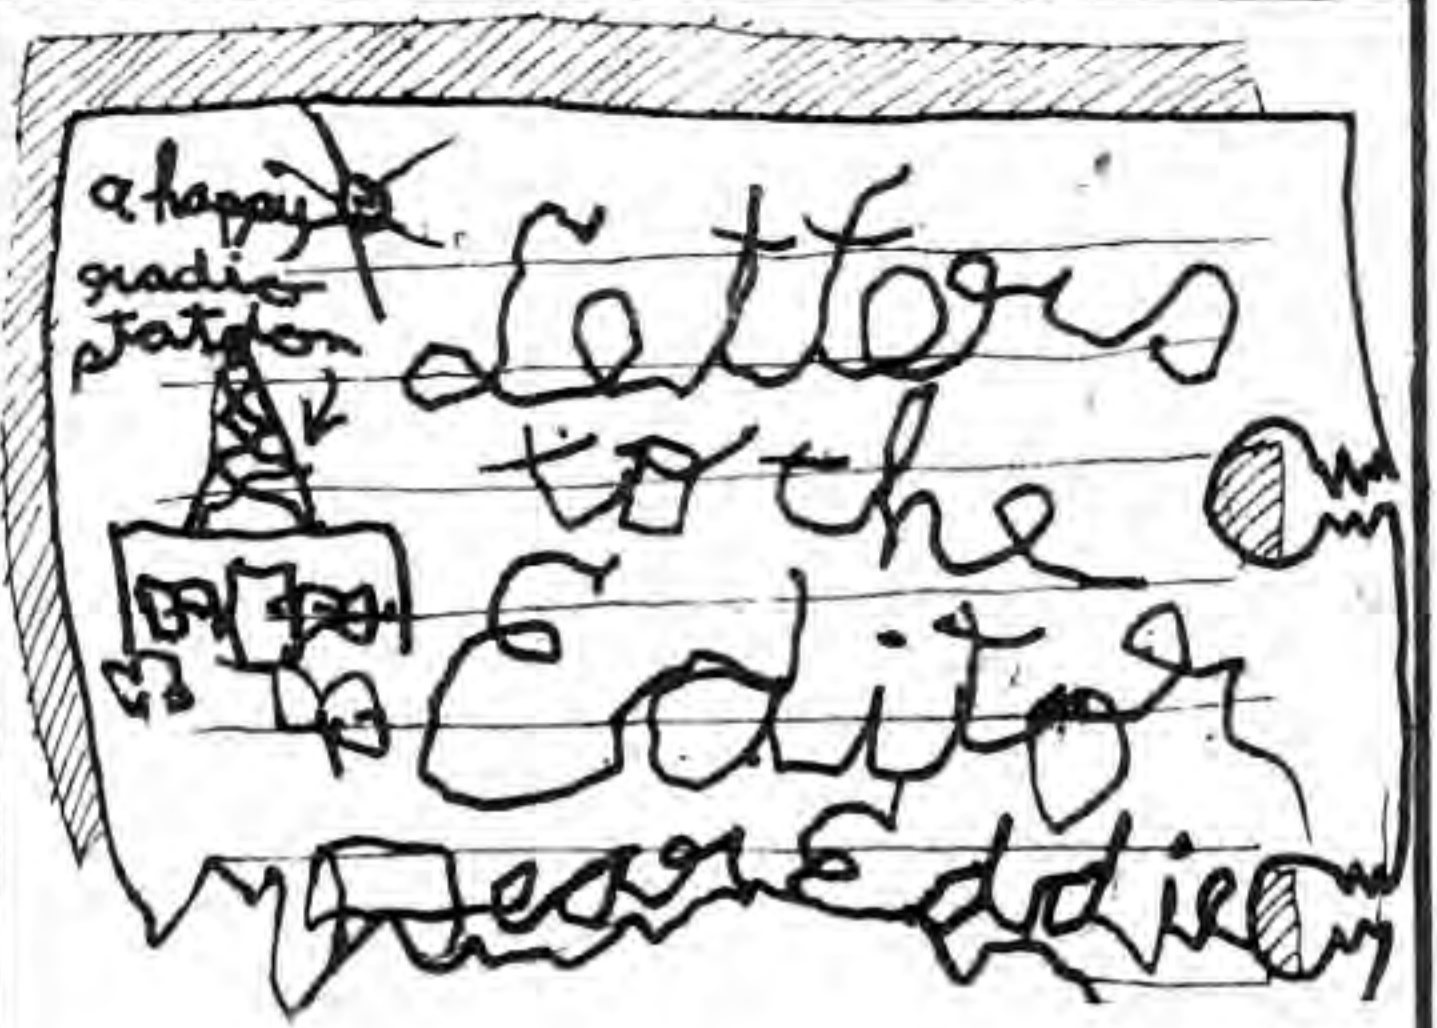 a happy
radio
station
Letters
to the
Editor
Dear Eddie